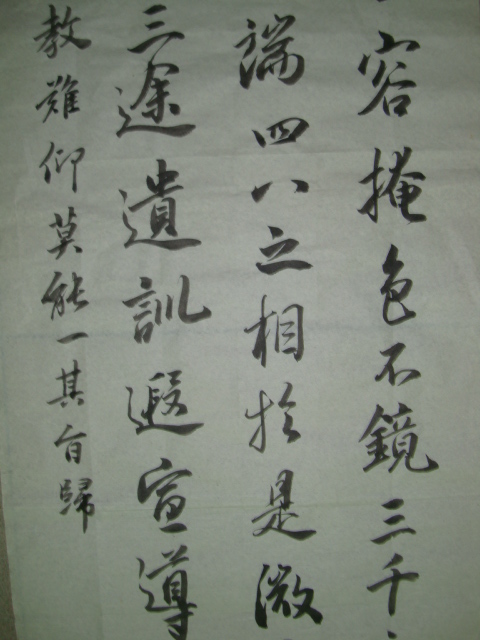 容掩色不鏡三千
端四八之相於是微
三途遺訓遐宣導
教難仰莫能一其旨歸